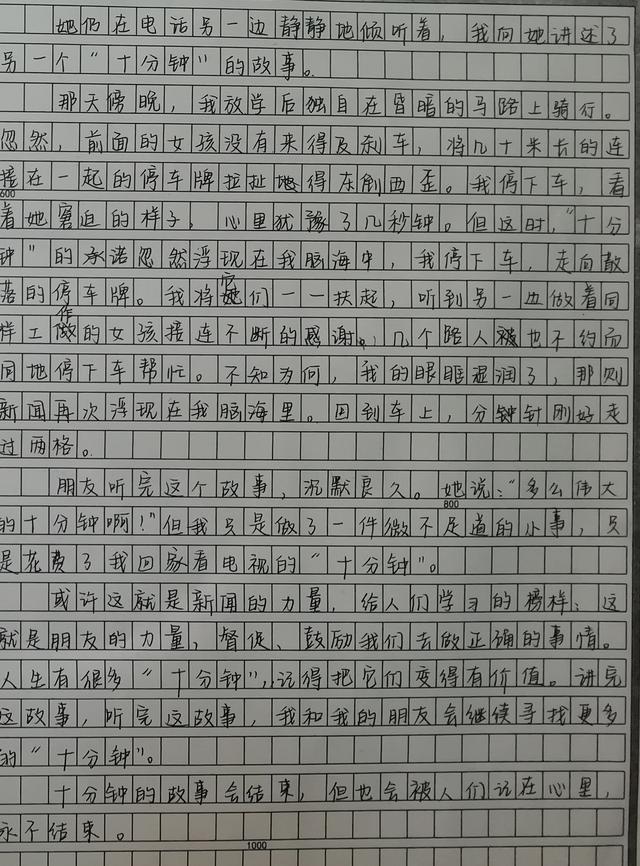 她仍在电话另一边静静地倾听着，我向她讲述了
另一个“十分钟”的故事。
那天傍晚，我放学后独自在昏暗的马路上骑行。
忽然，前面的女孩没有来得及刹车，将几十米长的连
接在一起的停车牌拉扯地得东倒西歪。我停下车，看
600
着她窘迫的样子，心里犹豫了几秒钟。但这时，“十分
钟”的承诺忽然浮现在我脑海中，我停下车，走向散
落的停车牌。我将它们一一扶起，听到另一边做着同
样工作的女孩接连不断的感谢。几个路人被也不约而
同地停下车帮忙。不知为何，我的眼眶湿润了，那则
新闻再次浮现在我脑海里。回到车上，分钟针刚好走
过两格。
朋友听完这个故事，沉默良久。她说：“多么伟大
800
的十分钟啊！”但我只是做了一件微不足道的小事，只
是花费了我回家看电视的“十分钟”。
或许这就是新闻的力量，给人们学习的榜样；这
就是朋友的力量，督促、鼓励我们去做正确的事情。
人生有很多“十分钟”，记得把它们变得有价值。讲完
这故事，听完这故事，我和我的朋友会继续寻找更多
的“十分钟”。
十分钟的故事会结束，但也会被人们记在心里，
永不结束。
1000